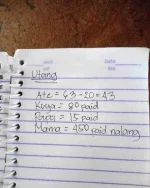 Utang
Ate = 63-20=43
Kuya = 80 paid
= 15 paid
Mama = 450 paid nalang